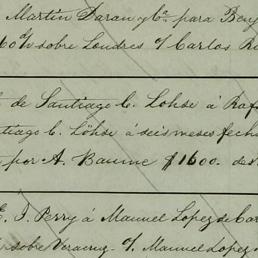 Martin Daran y Cª para Benj
60 d/v sobre Londres o/ Carlos R
de Santiago C. Löhse á Raf
tiago C. Löhse á seis meses fecha
por A. Baume $1600. de
E. J. Perry á Manuel Lopez de Car
sobre Veracruz o/ Manuel Lopez